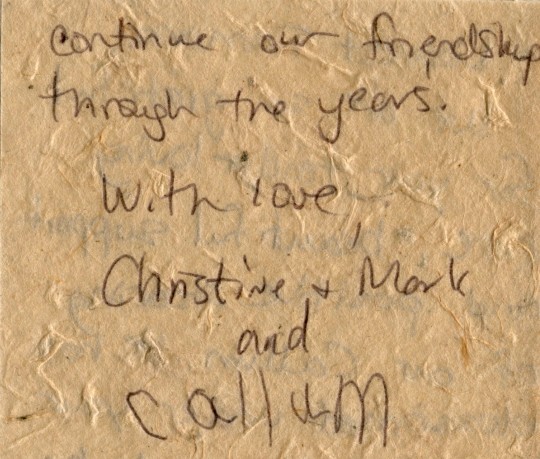 continue our friendship
through the years.
With love,
Christine + Mark
and
callum